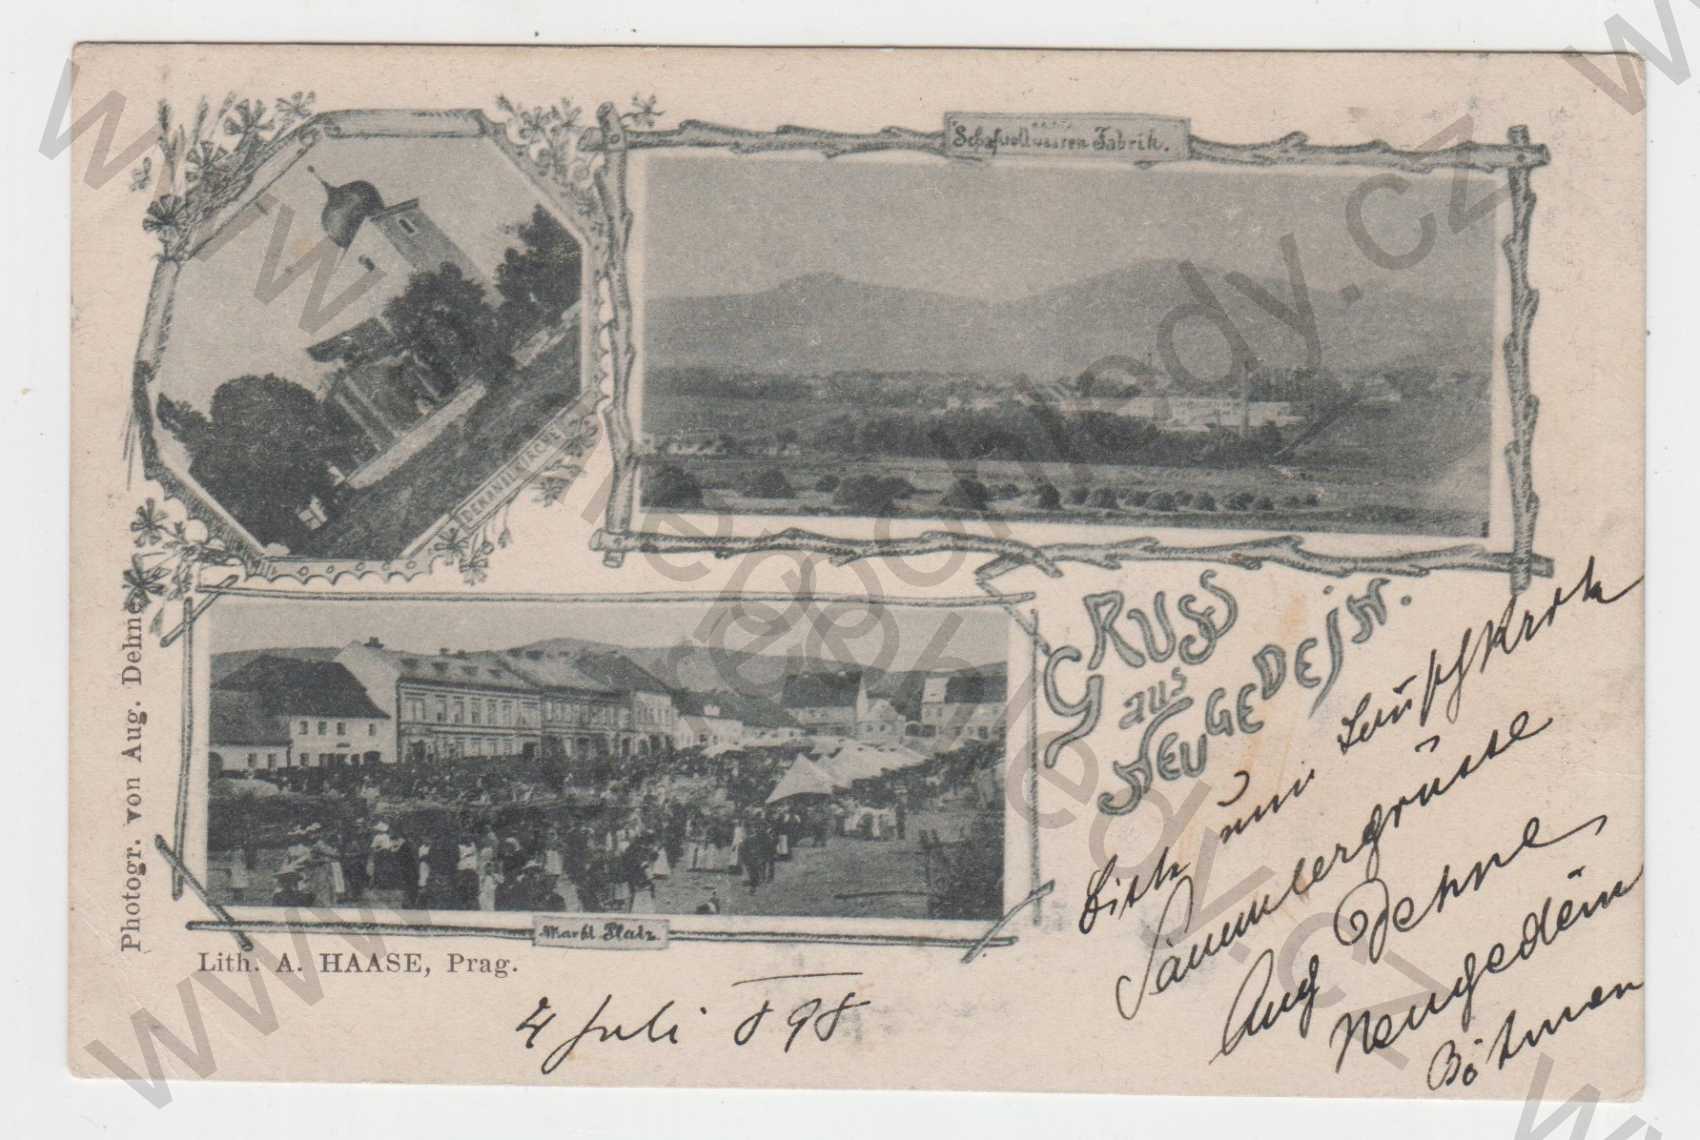 Schafwollwaaren Fabrik.
DEKANALKIRCHE
Markt Platz
GRUSS
aus
NEUGEDEIN.
Photogr. von Aug. Dehne
Lith. A. HAASE, Prag.
4 Juli 898
Bitte um
Sammlergrüsse
Aug Dehne
Neugedein
Böhmen
www.nepohledy.cz